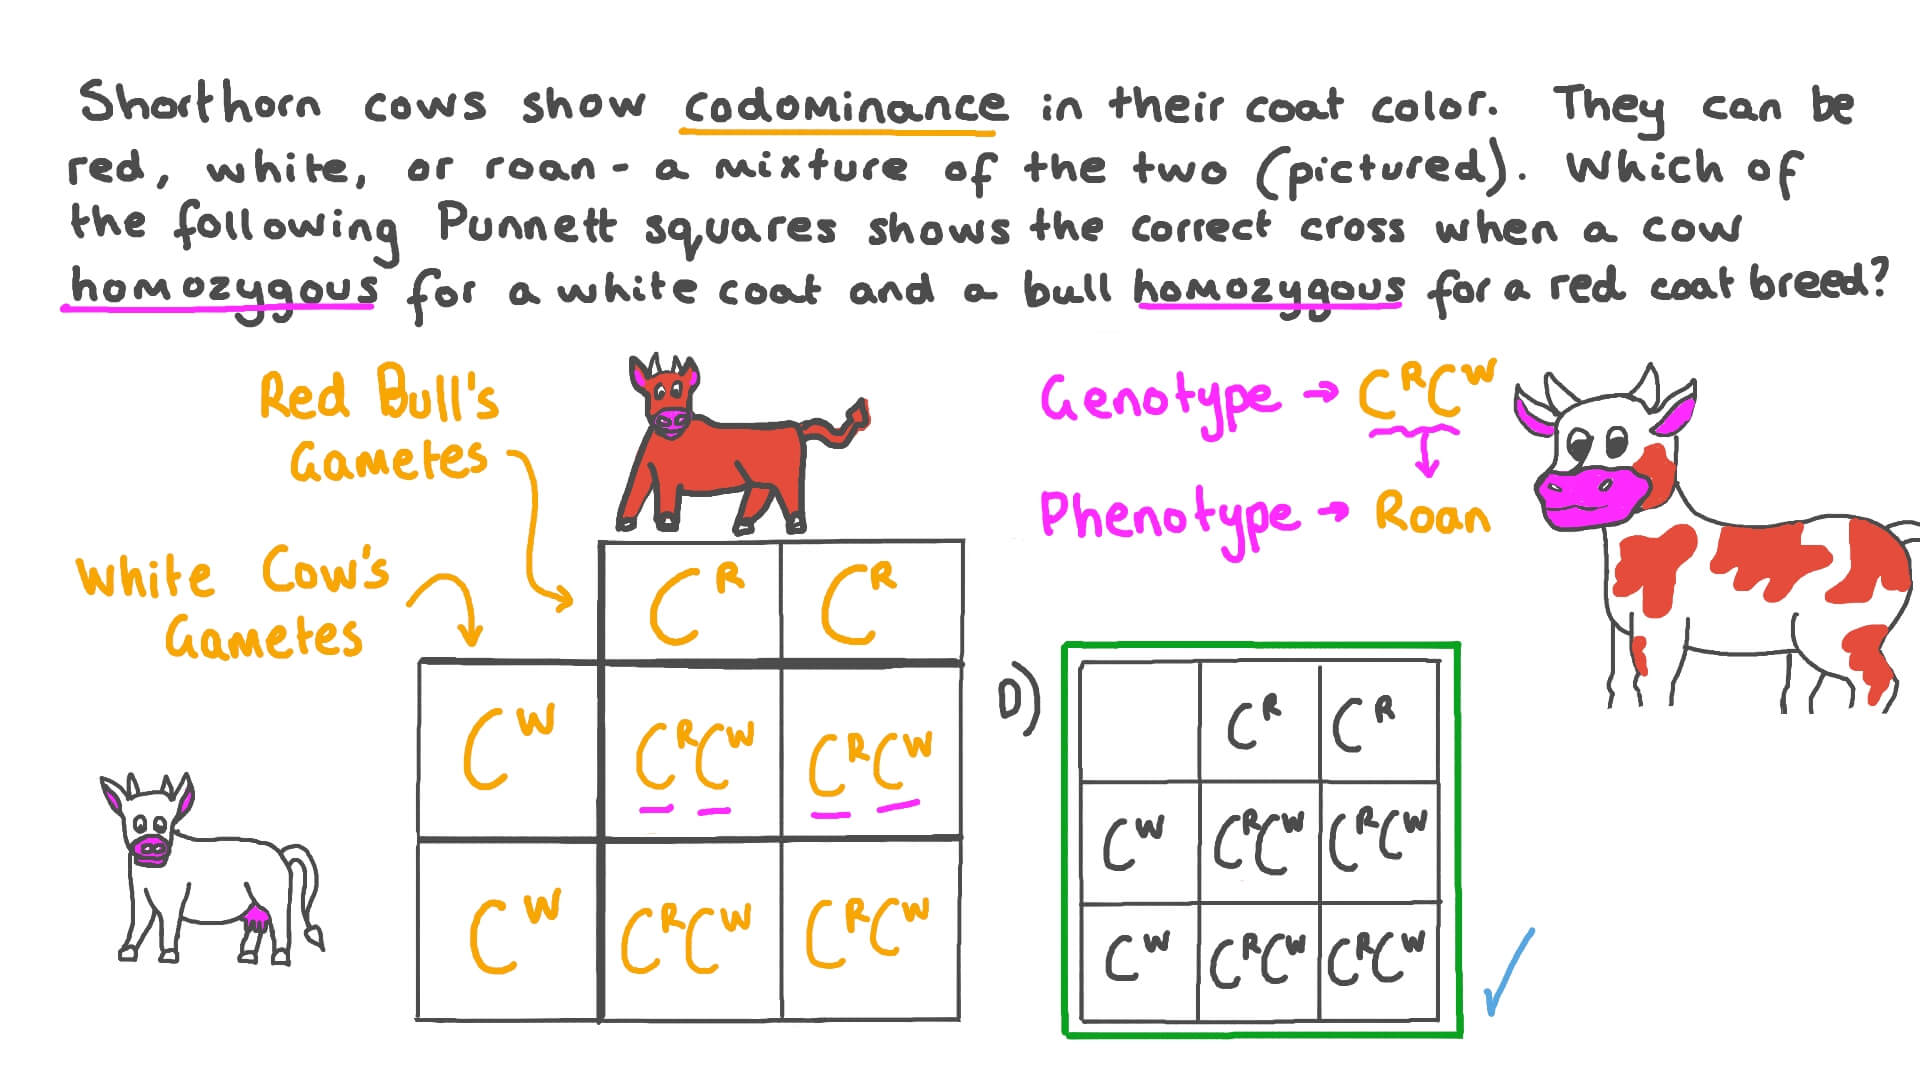 Shorthorn cows show codominance in their coat color. They can be
red, white, or roan - a mixture of the two (pictured). Which of
the following Punnett squares shows the correct cross when a cow
homozygous for a white coat and a bull homozygous for a red coat breed?
Red Bull's
Gametes
White Cow's
Gametes
Genotype → CᴿCᵂ
Phenotype → Roan
Cᴿ Cᴿ
Cᵂ CᴿCᵂ CᴿCᵂ
Cᵂ CᴿCᵂ CᴿCᵂ
D)
Cᴿ Cᴿ
Cᵂ CᴿCᵂ CᴿCᵂ
Cᵂ CᴿCᵂ CᴿCᵂ